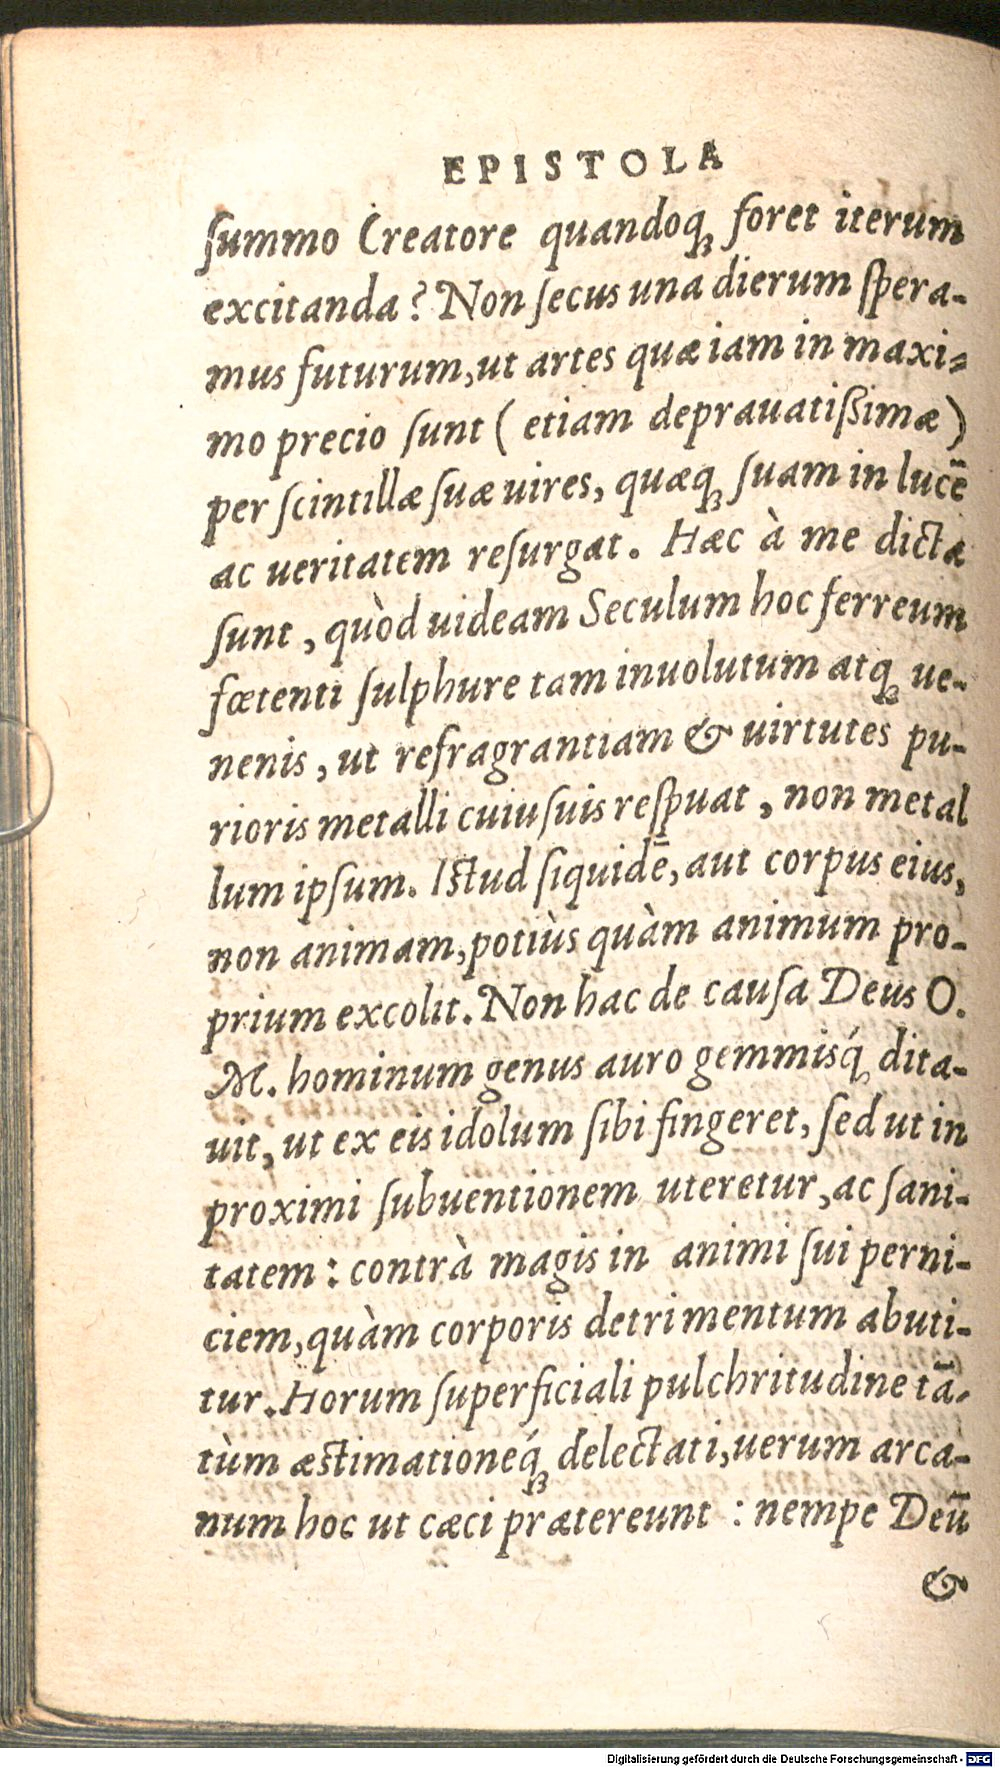 EPISTOLA
ſummo Creatore quandoq; foret iterum
excitanda? Non ſecus una dierum ſpera-
mus futurum, ut artes quæ iam in maxi-
mo precio ſunt (etiam deprauatiſsimæ)
per ſcintillæ ſuæ uires, quæq; ſuam in lucē
ac ueritatem reſurgat. Hæc à me dicta
ſunt, quòd uideam Seculum hoc ferreum
fœtenti ſulphure tam inuolutum atq; ue-
nenis, ut refragrantiam & uirtutes pu-
rioris metalli cuiuſuis reſpuat, non metal
lum ipſum. Iſtud ſiquidē, aut corpus eius,
non animam, potiùs quàm animum pro-
prium excolit. Non hac de cauſa Deus O.
M. hominum genus auro gemmisq́; dita-
uit, ut ex eis idolum ſibi fingeret, ſed ut in
proximi ſubuentionem uteretur, ac ſani-
tatem: contrà magis in animi ſui perni-
ciem, quàm corporis detrimentum abuti-
tur. Horum ſuperficiali pulchritudine tā-
tùm æſtimationeq́; delectati, uerum arca-
num hoc ut cæci prætereunt: nempe Deū
&
Digitalisierung gefördert durch die Deutsche Forschungsgemeinschaft - DFG